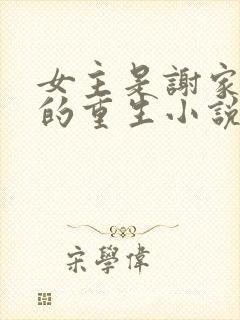 女主是謝家
的重生小說
宋學偉